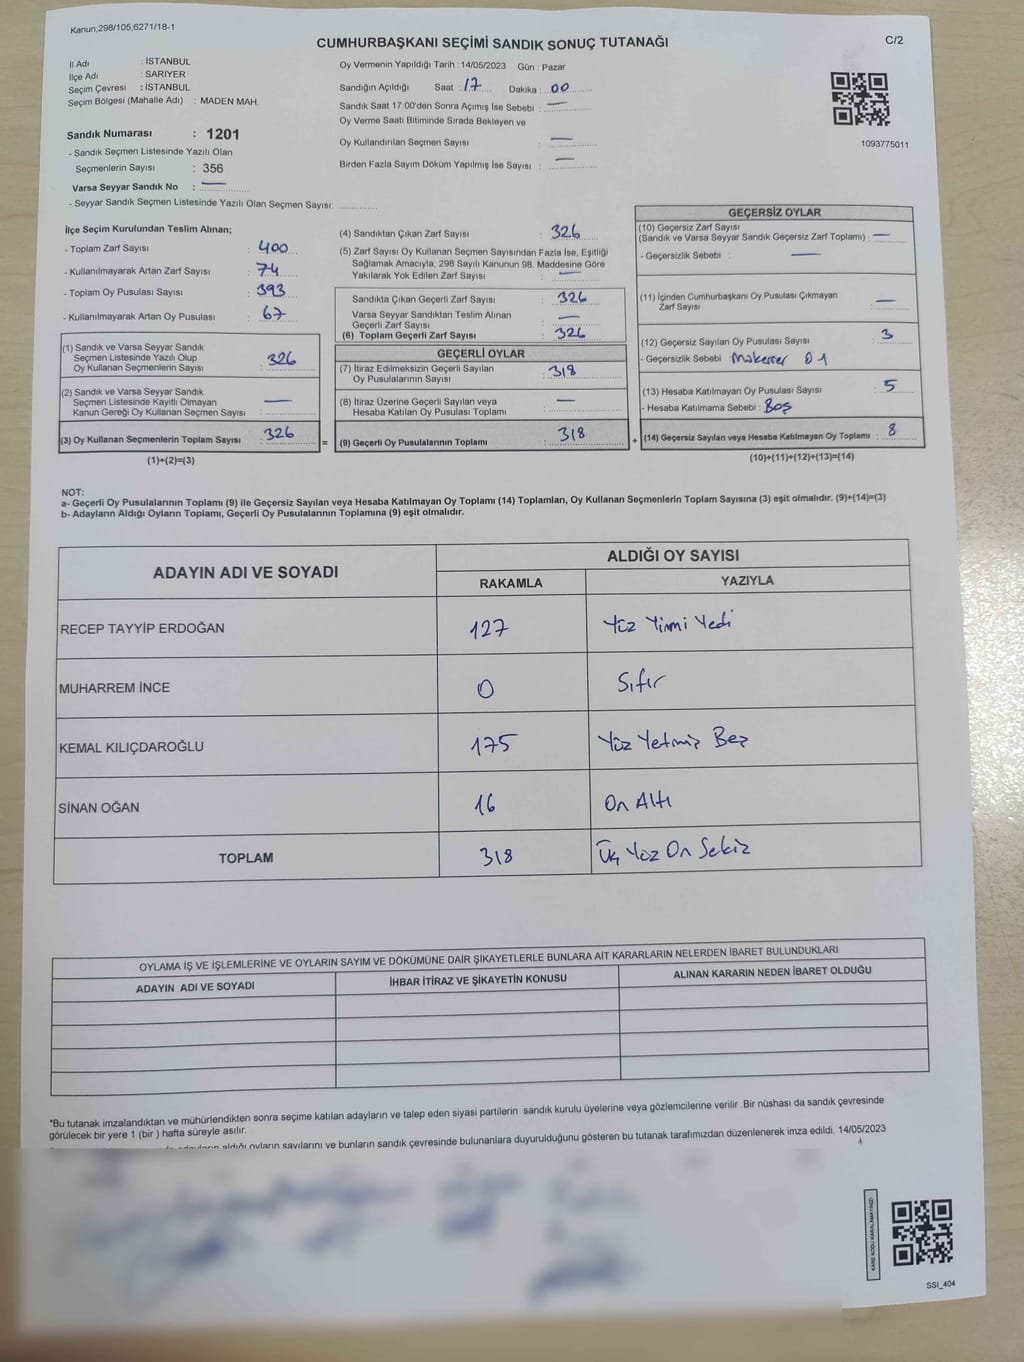 Kanun;298/105;6271/18-1
C/2
CUMHURBAŞKANI SEÇİMİ SANDIK SONUÇ TUTANAĞI
İl Adı : İSTANBUL
İlçe Adı : SARIYER
Seçim Çevresi : İSTANBUL
Seçim Bölgesi (Mahalle Adı) : MADEN MAH.
Sandık Numarası : 1201
- Sandık Seçmen Listesinde Yazılı Olan
Seçmenlerin Sayısı : 356
Varsa Seyyar Sandık No : —
- Seyyar Sandık Seçmen Listesinde Yazılı Olan Seçmen Sayısı:
Oy Vermenin Yapıldığı Tarih : 14/05/2023 Gün : Pazar
Sandığın Açıldığı Saat : 17 Dakika : 00
Sandık Saat 17:00'den Sonra Açımış İse Sebebi : —
Oy Verme Saati Bitiminde Sırada Bekleyen ve
Oy Kullandırılan Seçmen Sayısı : —
Birden Fazla Sayım Döküm Yapılmış İse Sayısı : —
1093775011
İlçe Seçim Kurulundan Teslim Alınan;
- Toplam Zarf Sayısı : 400
- Kullanılmayarak Artan Zarf Sayısı : 74
- Toplam Oy Pusulası Sayısı : 393
- Kullanılmayarak Artan Oy Pusulası : 67
(1) Sandık ve Varsa Seyyar Sandık
Seçmen Listesinde Yazılı Olup
Oy Kullanan Seçmenlerin Sayısı : 326
(2) Sandık ve Varsa Seyyar Sandık
Seçmen Listesinde Kayıtlı Olmayan
Kanun Gereği Oy Kullanan Seçmen Sayısı : —
(3) Oy Kullanan Seçmenlerin Toplam Sayısı : 326
(1)+(2)=(3)
(4) Sandıktan Çıkan Zarf Sayısı : 326
(5) Zarf Sayısı Oy Kullanan Seçmen Sayısından Fazla İse, Eşitliği
Sağlamak Amacıyla; 298 Sayılı Kanunun 98. Maddesine Göre
Yakılarak Yok Edilen Zarf Sayısı : —
Sandıkta Çıkan Geçerli Zarf Sayısı : 326
Varsa Seyyar Sandıktan Teslim Alınan
Geçerli Zarf Sayısı : —
(6) Toplam Geçerli Zarf Sayısı : 326
GEÇERLİ OYLAR
(7) İtiraz Edilmeksizin Geçerli Sayılan
Oy Pusulalarının Sayısı : 318
(8) İtiraz Üzerine Geçerli Sayılan veya
Hesaba Katılan Oy Pusulası Toplamı : —
= (9) Geçerli Oy Pusulalarının Toplamı : 318
GEÇERSİZ OYLAR
(10) Geçersiz Zarf Sayısı
(Sandık ve Varsa Seyyar Sandık Geçersiz Zarf Toplamı) : —
- Geçersizlik Sebebi : —
(11) İçinden Cumhurbaşkanı Oy Pusulası Çıkmayan
Zarf Sayısı : —
(12) Geçersiz Sayılan Oy Pusulası Sayısı : 3
- Geçersizlik Sebebi Mükerrer
(13) Hesaba Katılmayan Oy Pusulası Sayısı : 5
- Hesaba Katılmama Sebebi : Boş
+ (14) Geçersiz Sayılan veya Hesaba Katılmayan Oy Toplamı : 8
(10)+(11)+(12)+(13)=(14)
NOT:
a- Geçerli Oy Pusulalarının Toplamı (9) ile Geçersiz Sayılan veya Hesaba Katılmayan Oy Toplamı (14) Toplamları, Oy Kullanan Seçmenlerin Toplam Sayısına (3) eşit olmalıdır. (9)+(14)=(3)
b- Adayların Aldığı Oyların Toplamı, Geçerli Oy Pusulalarının Toplamına (9) eşit olmalıdır.
ADAYIN ADI VE SOYADI
ALDIĞI OY SAYISI
RAKAMLA YAZIYLA
RECEP TAYYİP ERDOĞAN 127 Yüz Yirmi Yedi
MUHARREM İNCE 0 Sıfır
KEMAL KILIÇDAROĞLU 175 Yüz Yetmiş Beş
SİNAN OĞAN 16 On Altı
TOPLAM 318 Üç Yüz On Sekiz
OYLAMA İŞ VE İŞLEMLERİNE VE OYLARIN SAYIM VE DÖKÜMÜNE DAİR ŞİKAYETLERLE BUNLARA AİT KARARLARIN NELERDEN İBARET BULUNDUKLARI
ADAYIN ADI VE SOYADI İHBAR İTİRAZ VE ŞİKAYETİN KONUSU ALINAN KARARIN NEDEN İBARET OLDUĞU
*Bu tutanak imzalandıktan ve mühürlendikten sonra seçime katılan adayların ve talep eden siyasi partilerin sandık kurulu üyelerine veya gözlemcilerine verilir .Bir nüshası da sandık çevresinde
görülecek bir yere 1 (bir ) hafta süreyle asılır.
aldığı oyların sayılarını ve bunların sandık çevresinde bulunanlara duyurulduğunu gösteren bu tutanak tarafımızdan düzenlenerek imza edildi. 14/05/2023
KARE KODU KARALAMAYINIZ!
SSI_404